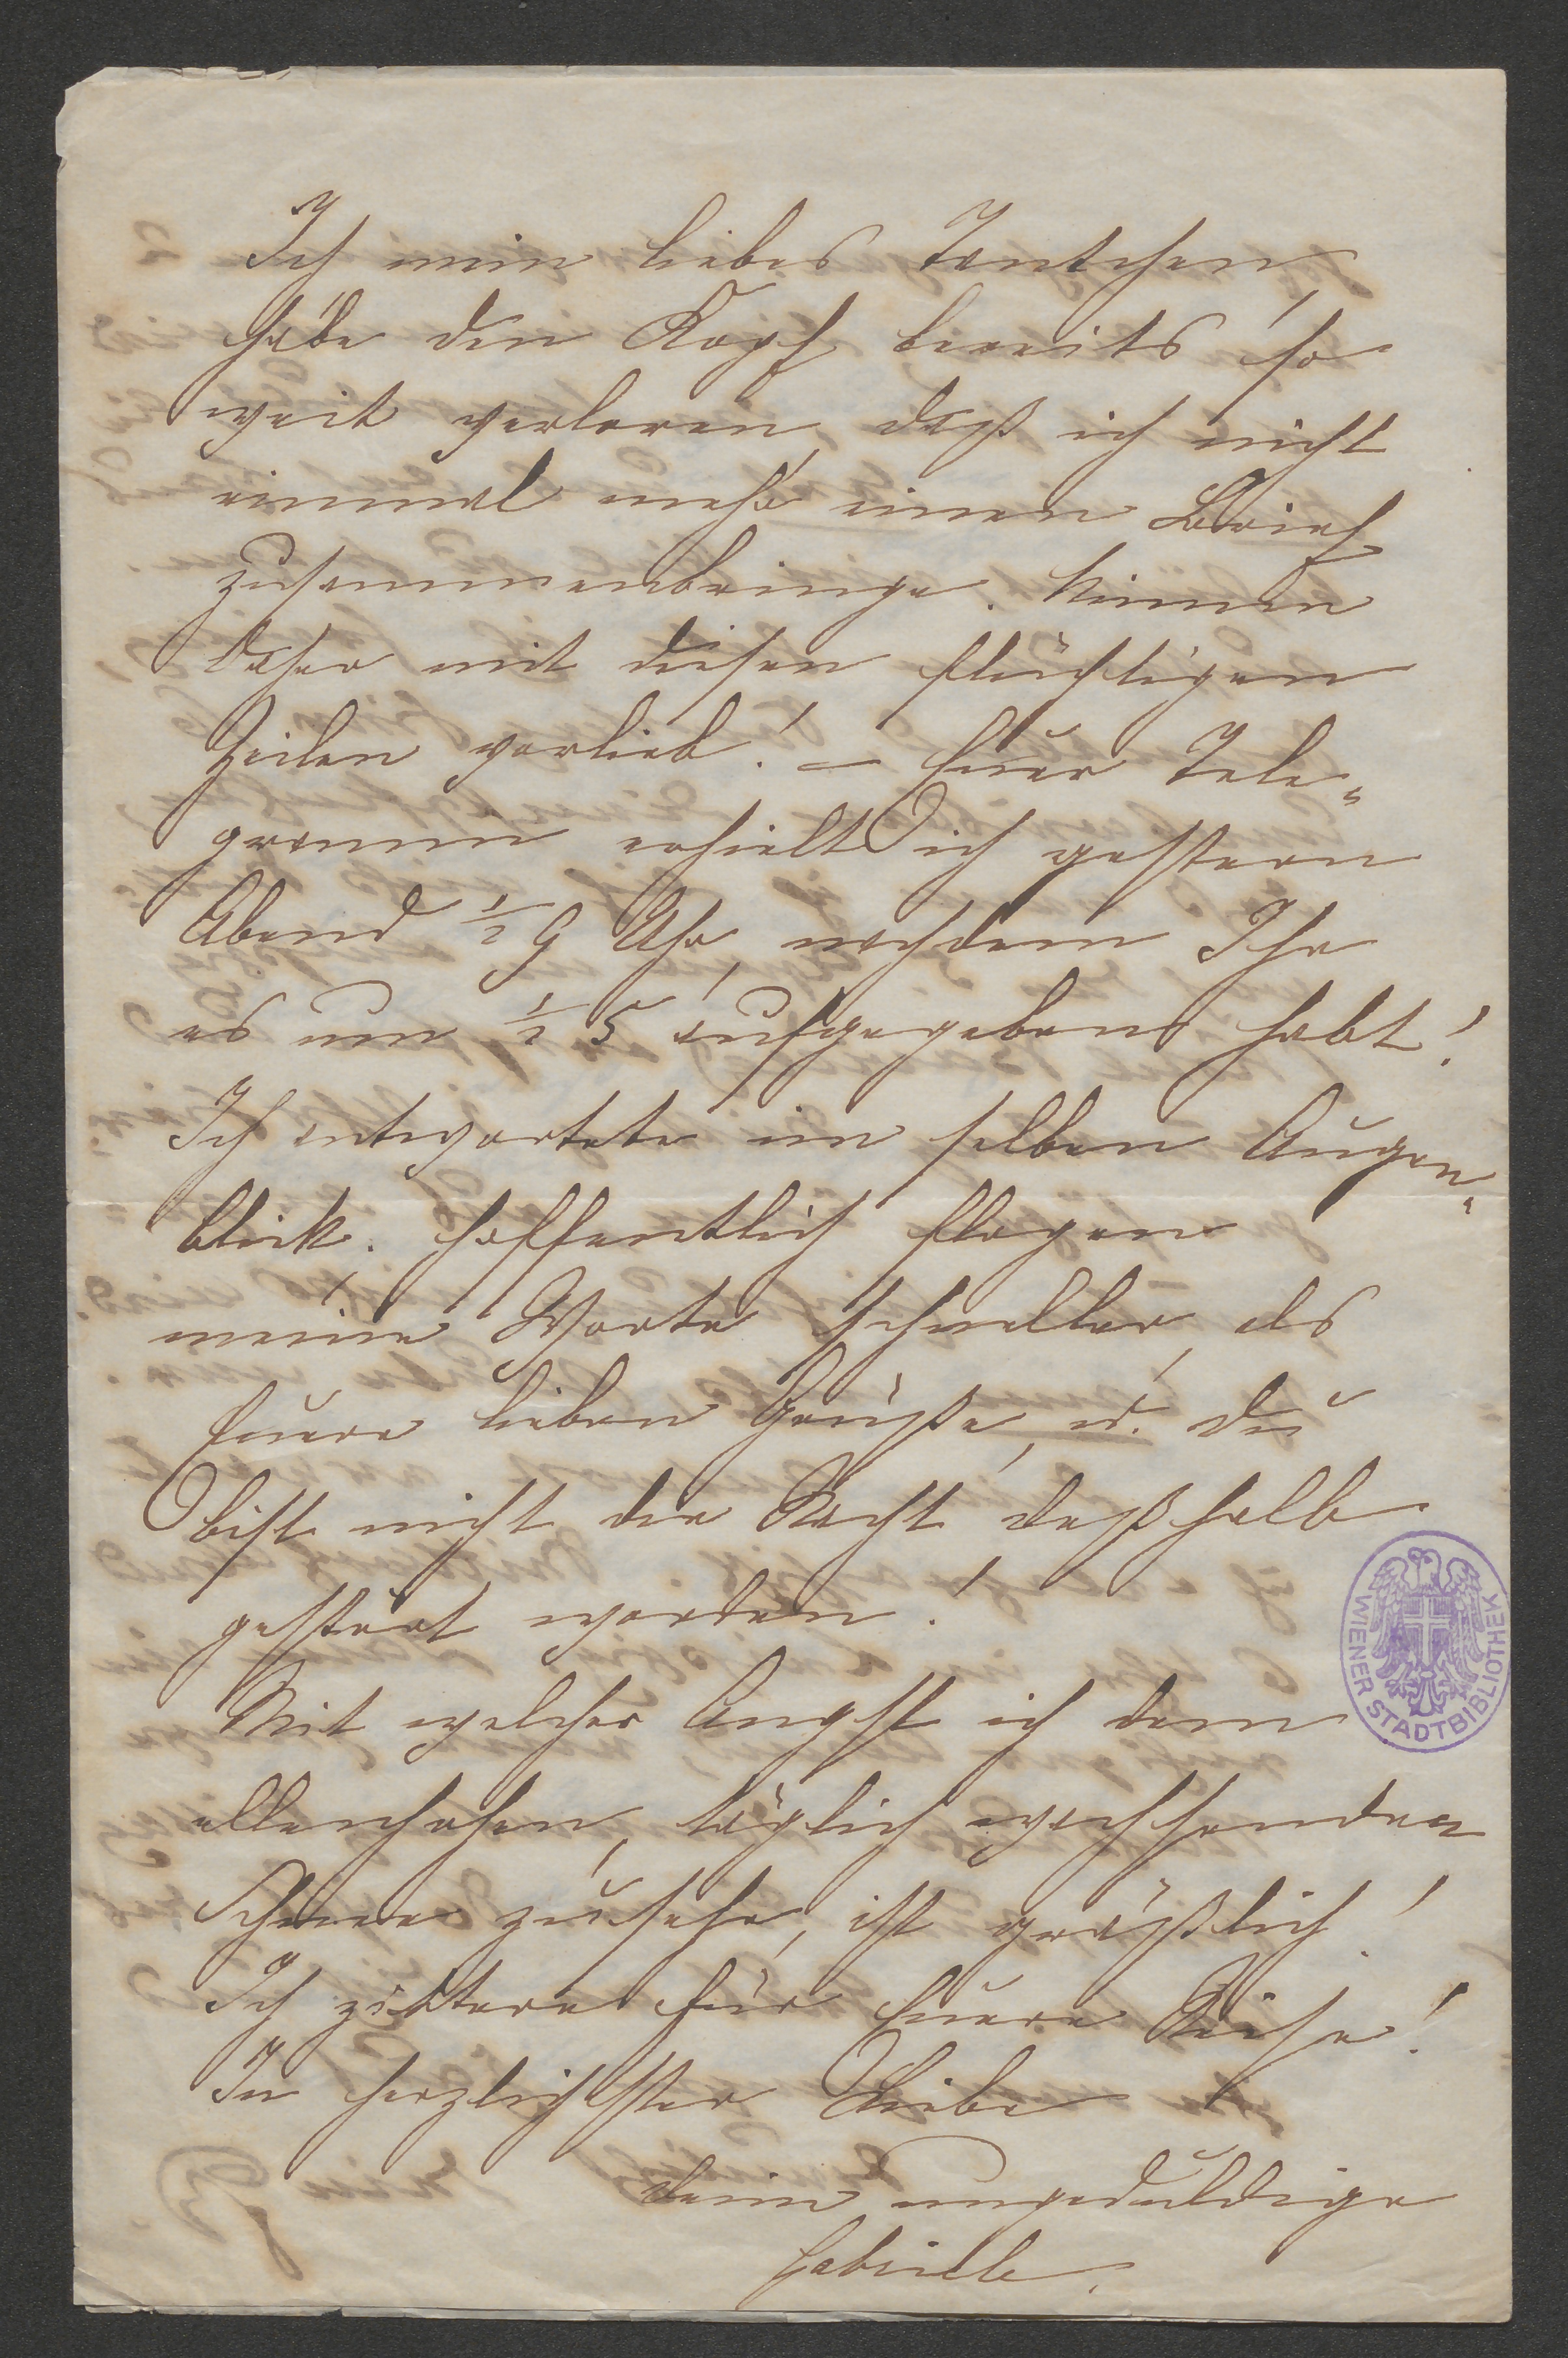 Ich mein liebes Tantchen,
habe den Kopf bereits so
weit verloren, daß ich nicht
einmal mehr einen Brief
zusammenbringe. Nimm
daher mit diesen flüchtigen
Zeilen vorlieb! – Euer Tele-
gramm erhielt ich gestern
Abend ½ 9 Uhr, nachdem Ihr
es um ½ 5 aufgegeben habt!
Ich antwortete im selben Augen-
blick. Hoffentlich flogen
meine Worte schneller, als
Euere lieben Grüße, u. Du
bist nicht die Nacht deßhalb
gestört worden!
Mit welcher Angst ich dem
ellenhohen, täglich wachsenden
Schnee zusehe, ist gräßlich!
Ich zittere für Euere Reise!
In herzlichster Liebe
Deine ungeduldige
Gabriele.
WIENER STADTBIBLIOTHEK